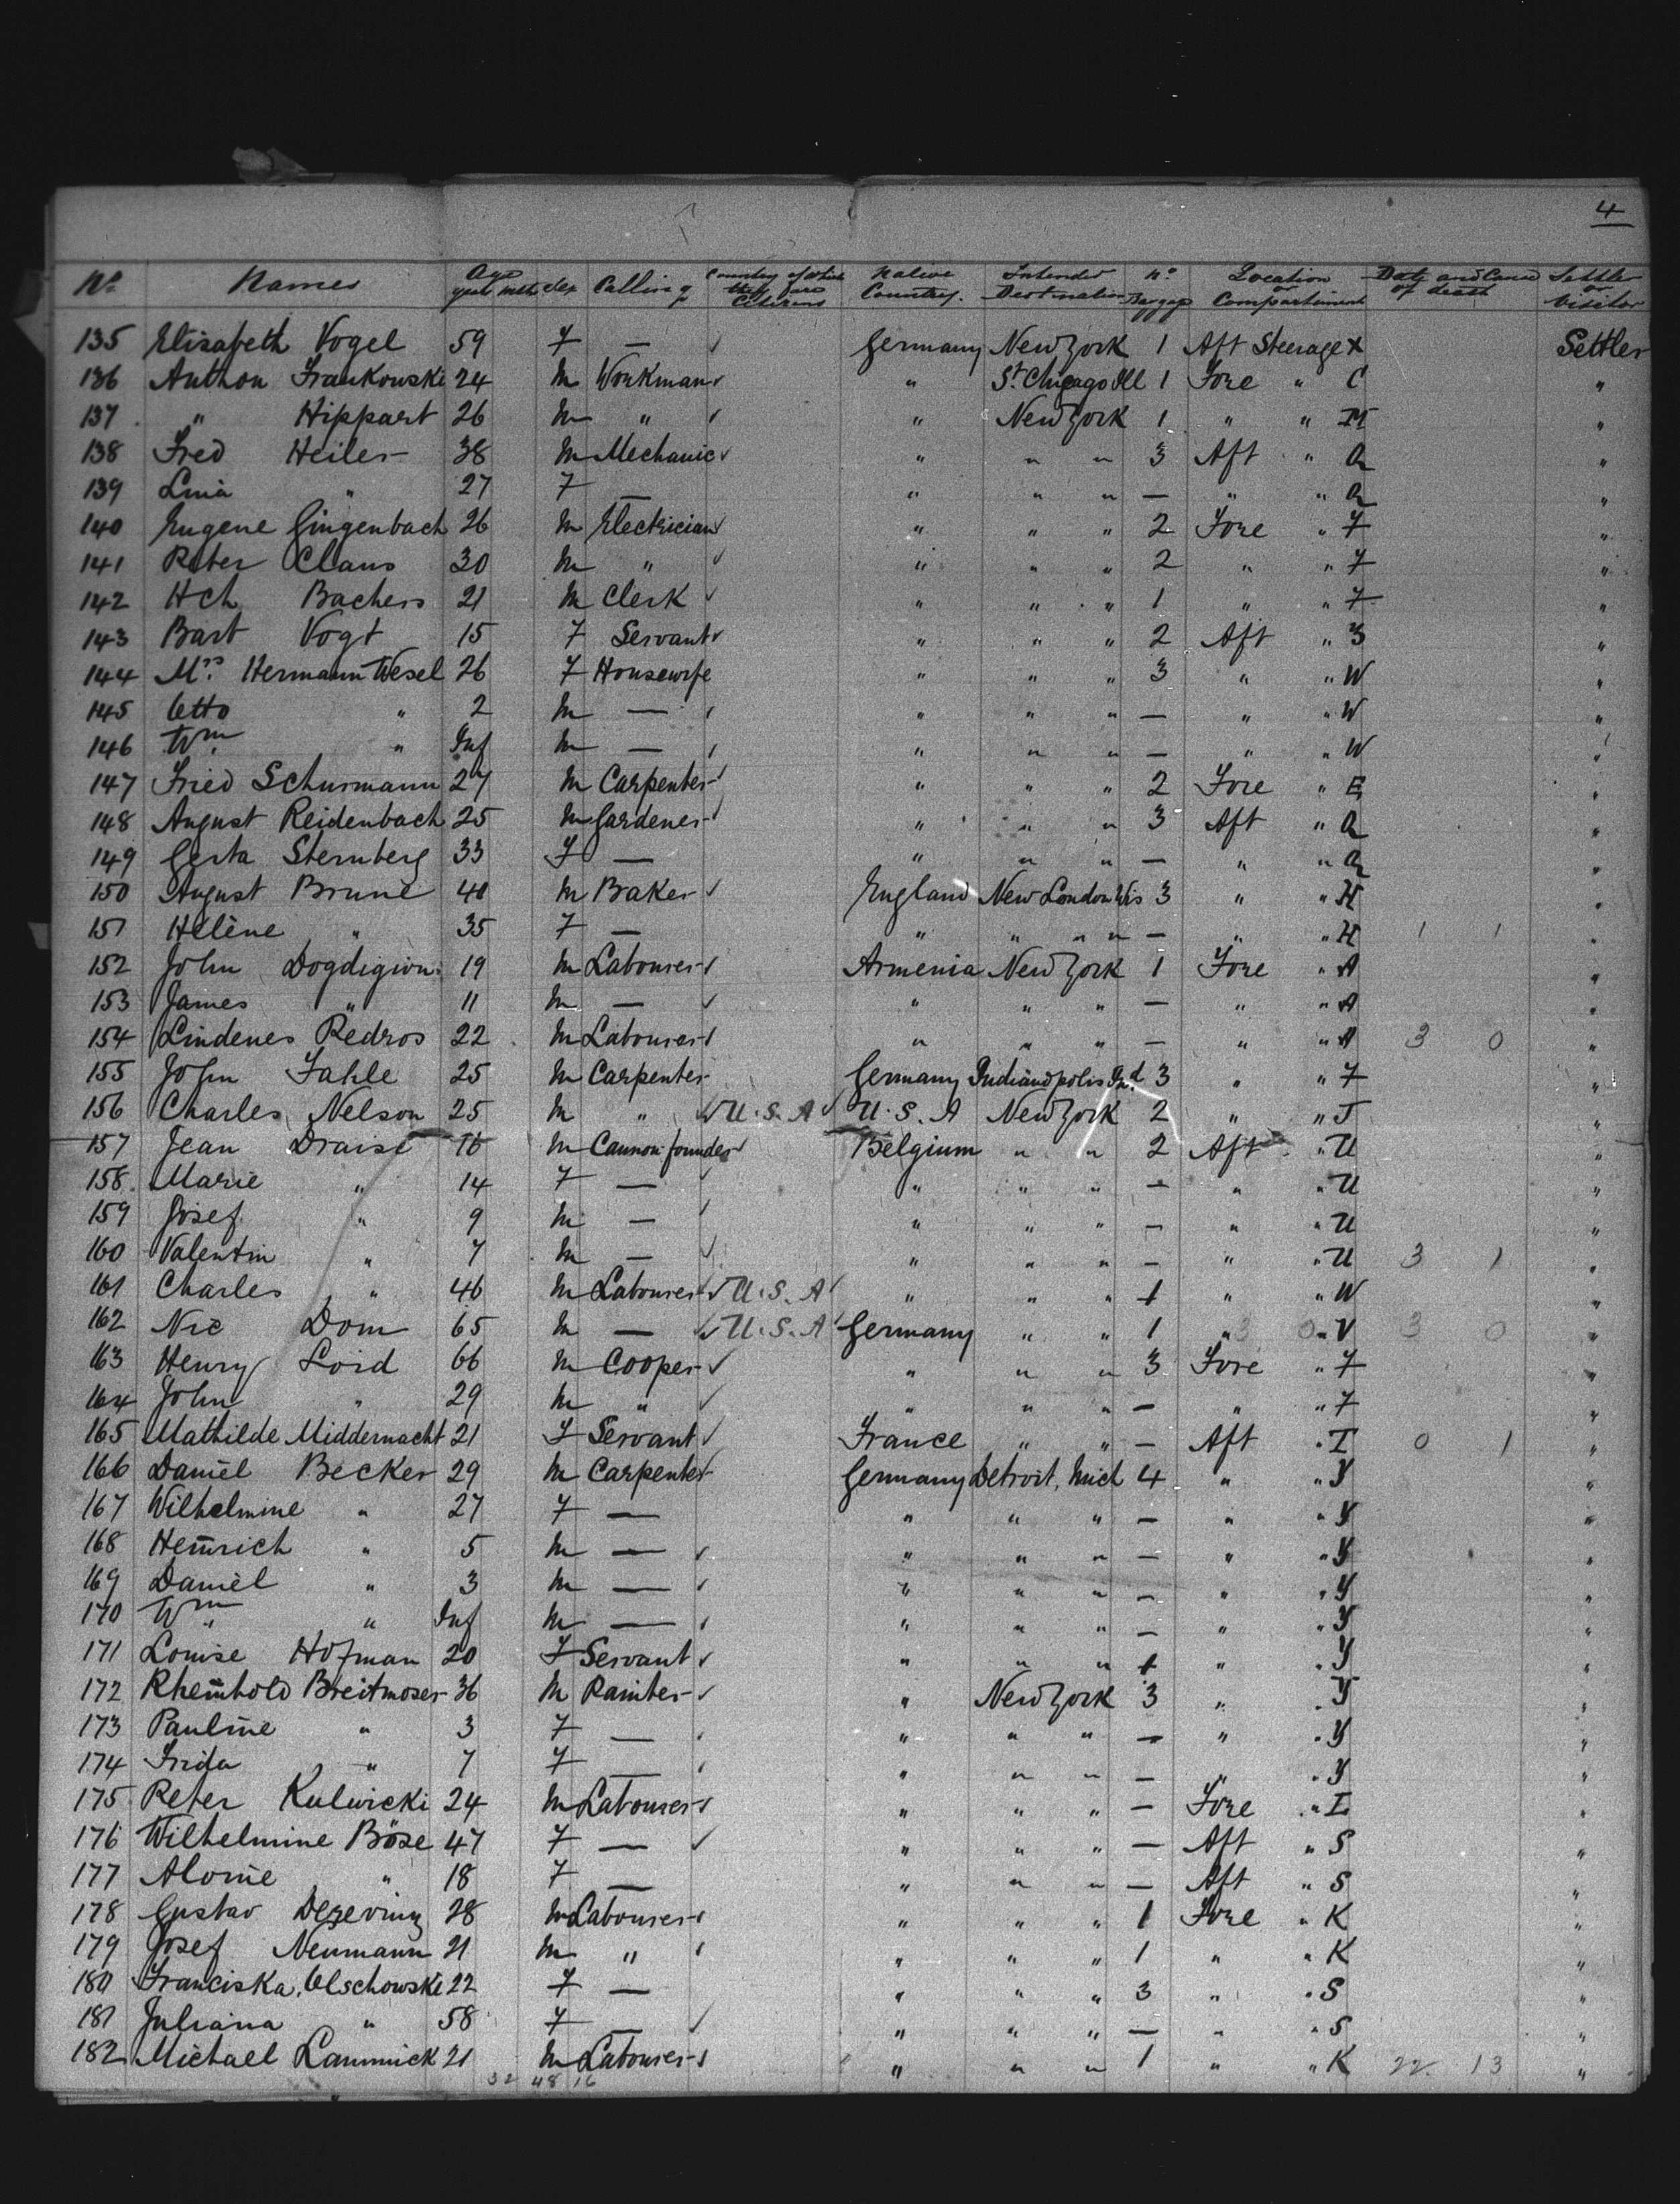 4
No Names Age years mth Sex Calling Country of which they are Citizens Native Country. Intended Destination No Baggage Location or Compartment Date and Cause of death Settler or Visitor
135 Elisabeth Vogel 59 F — ✓ Germany New York 1 Aft Steerage X Settler
136 Anthon Frankowski 24 M Workman ✓ " St. Chicago Ill 1 Fore " C "
137 " Hippart 26 M " ✓ " New York 1 " " M "
138 Fred Heiler 38 M Mechanic ✓ " " " 3 Aft " Q "
139 Lina " 27 F — " " " — " " Q "
140 Eugene Gingenbach 26 M Electrician ✓ " " " 2 Fore " F "
141 Peter Claus 30 M " ✓ " " " 2 " " F "
142 Hch Bachers 21 M Clerk ✓ " " " 1 " " F "
143 Bart Vogt 15 F Servant ✓ " " " 2 Aft " 3 "
144 Mrs Hermann Wesel 26 F Housewife " " " 3 " " W "
145 Otto " 2 M — ✓ " " " — " " W "
146 Wm " Inf M — ✓ " " " — " " W "
147 Fried Schurmann 27 M Carpenter ✓ " " " 2 Fore " E "
148 August Reidenbach 25 M Gardener ✓ " " " 3 Aft " Q "
149 Gerta Sternberg 33 F — " " " — " " Q "
150 August Brune 40 M Baker ✓ England New London Wis 3 " " H "
151 Helène " 35 F — " " " " — " " H 1 1 "
152 John Dogdigion 19 M Labourer ✓ Armenia New York 1 Fore " A "
153 James " 11 M — ✓ " " " — " " A "
154 Lindenes Pedros 22 M Labourer ✓ " " " — " " A 3 0 "
155 John Fahle 25 M Carpenter Germany Indianopolis Ind 3 " " F "
156 Charles Nelson 25 M " ✓ U.S.A ✓ U.S.A New York 2 " " J "
157 Jean Draise 16 M Cannon founder ✓ Belgium " " 2 Aft " U "
158 Marie " 14 F — ✓ " " " — " " U "
159 Josef " 9 M — ✓ " " " — " " U "
160 Valentin " 7 M — ✓ " " " — " " U 3 1 "
161 Charles " 46 M Labourer ✓ U.S.A " " " 1 " " W "
162 Nic Dom 65 M — ✓ U.S.A Germany " " 1 " 3 0 " V 3 0 "
163 Henry Loid 66 M Cooper ✓ " " " 3 Fore " F "
164 John " 29 M " ✓ " " " — " " F "
165 Mathilde Middernacht 21 F Servant ✓ France " " — Aft " T 0 1 "
166 Daniel Becker 29 M Carpenter ✓ Germany Detroit, Mich 4 " " Y "
167 Wilhelmine " 27 F — " " " — " " Y "
168 Heinrich " 5 M — ✓ " " " — " " Y "
169 Daniel " 3 M — ✓ " " " — " " Y "
170 Wm " Inf M — ✓ " " " — " " Y "
171 Louise Hofman 20 F Servant ✓ " " " 1 " " Y "
172 Rheinhold Breitmoser 36 M Painter ✓ " New York 3 " " Y "
173 Pauline " 3 F — ✓ " " " — " " Y "
174 Frida " 7 F — ✓ " " " — " " Y "
175 Peter Kulwicki 24 M Labourer ✓ " " " — Fore " L "
176 Wilhelmine Böse 47 F — ✓ " " " — Aft " S "
177 Aloine " 18 F — " " " — Aft " S "
178 Gustav Dezeving 28 M Labourer ✓ " " " 1 Fore " K "
179 Josef Neumann 21 M " ✓ " " " 1 " " K "
180 Franciska Olschowski 22 F — " " " 3 " " S "
181 Juliana " 58 F — ✓ " " " — " " S "
182 Michael Lammick 21 M Labourer ✓ " " " 1 " " K 22 13 "
32 48 16